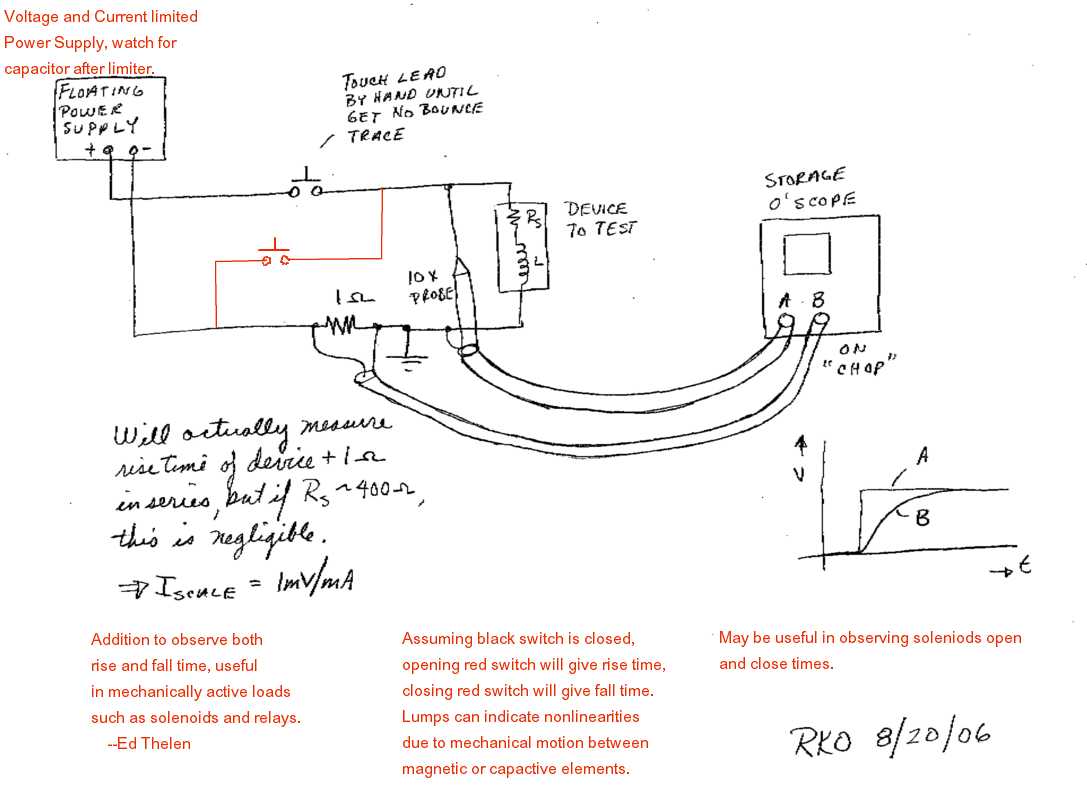 Voltage and Current limited
Power Supply, watch for
capacitor after limiter.
FLOATING
POWER
SUPPLY
+ -
TOUCH LEAD
BY HAND UNTIL
GET NO BOUNCE
TRACE
RS
L
DEVICE
TO TEST
STORAGE
O'SCOPE
A B
ON
"CHOP"
10X
PROBE
1Ω
Will actually measure
rise time of device + 1Ω
in series, but if RS ~ 400Ω,
this is negligible.
⇒ ISCALE = 1mV/mA
V
A
B
→ t
Addition to observe both
rise and fall time, useful
in mechanically active loads
such as solenoids and relays.
--Ed Thelen
Assuming black switch is closed,
opening red switch will give rise time,
closing red switch will give fall time.
Lumps can indicate nonlinearities
due to mechanical motion between
magnetic or capactive elements.
May be useful in observing soleniods open
and close times.
RKO 8/20/06